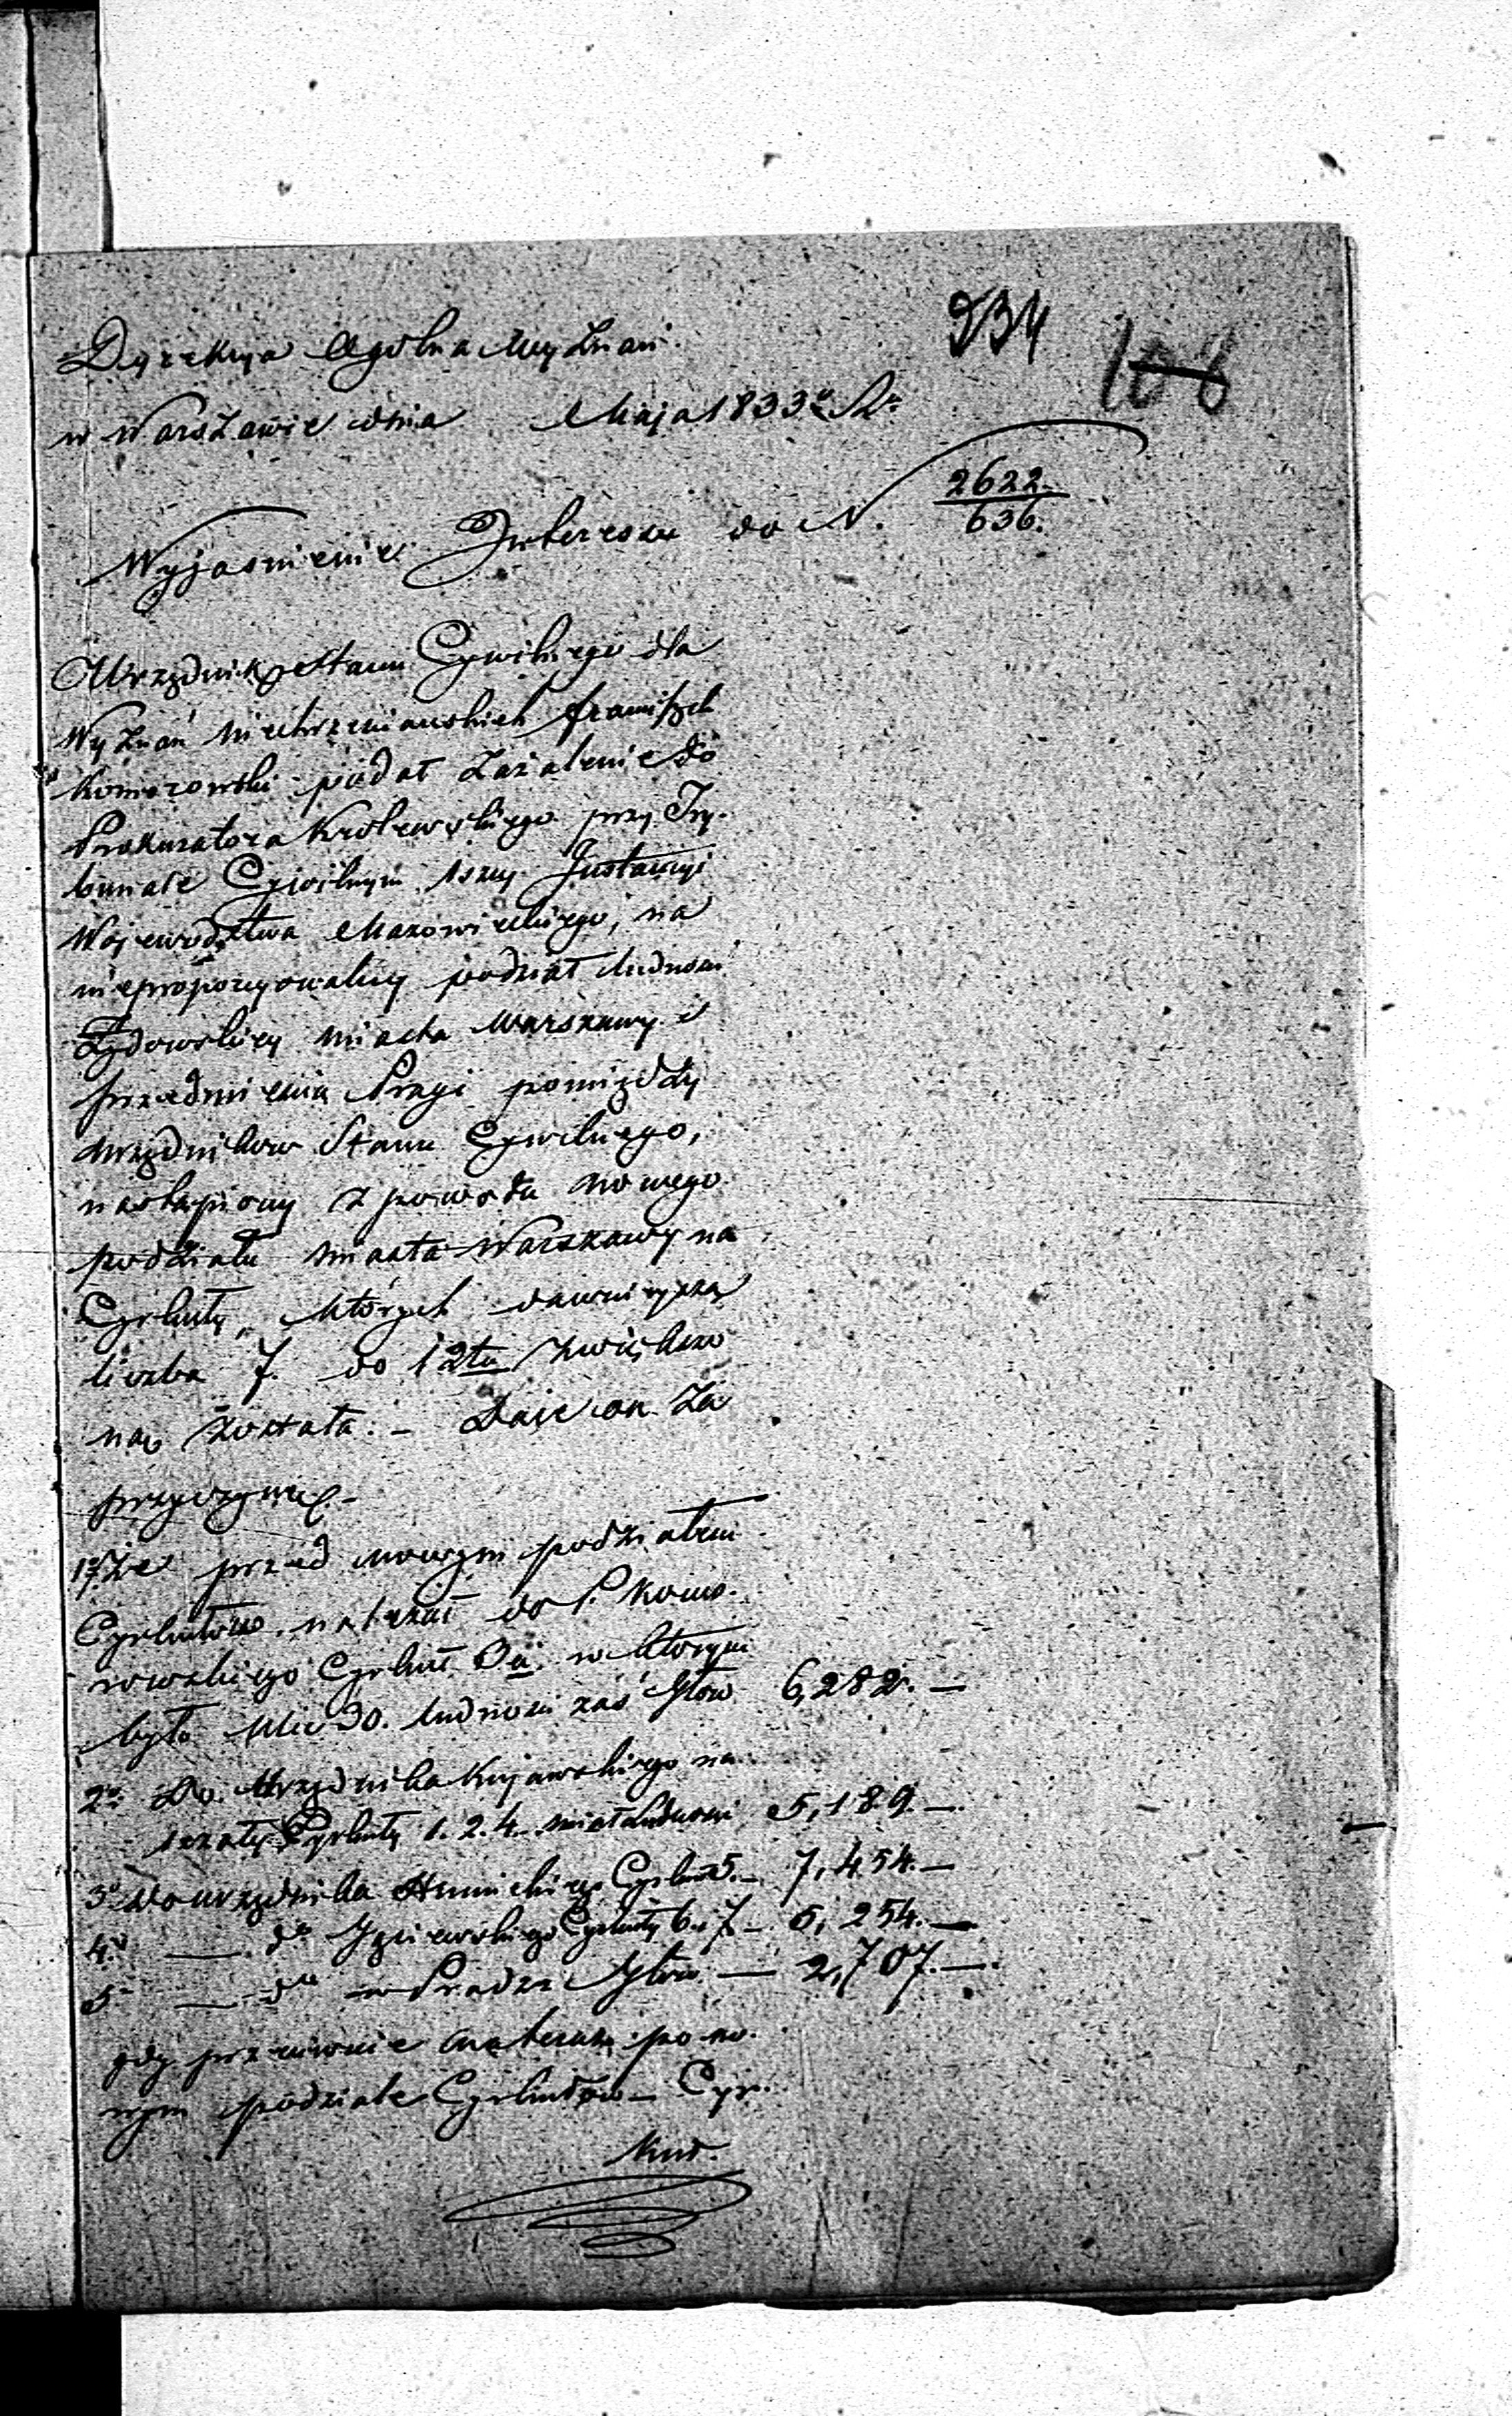 234
108
Dyrekcya Ogolna Wyznań.
w Warszawie dnia Maja 1833o R.
Wyjasnienie Interesu do N. 2622/636.
Urzędnik Stanu Cywilnego dla
Wyznań Niechrzesciauskich Franciszek
Komorowski podał Zażalenie do
Prokuratora Krolewskiego przy Try-
bunale Cywilnym 1szey Instancyi
Wojewodztwa Mazowieckiego, na
nieproporcyonalny podział ludnosci
Żydowskiey miasta Warszawy i
przedmiescia Pragi pomiędzy
urzędnikow Stanu Cywilnego,
nastąpiony z powodu nowego
podziału miasta Warszawy na
Cyrkuły, których dawnieysza
liczba 7. do 12tu zwiększo
ną została. – Daie on Za
przyczynę. –
1o Że przed nowym podziałem
Cyrkułów należał do P. Komo-
rowskiego Cyrkuł 3ci w ktorym
było Ulic 30. ludnosci zaś głow 6,282. —
2o Do Urzędnika Kujawskiego na
leżały Cyrkuły 1. 2. 4. miał ludnosci 5,189. —
3o do urzędnika Cyrkuł 5. — 7,454. —
4o — do Cyrkuły 6. i 7 — 5,254. —
5o — do w Pradze głow — 2,707. —
gdy przeciwnie teraz po no-
wym podziale Cyrkułow — Cyr-
kuł.